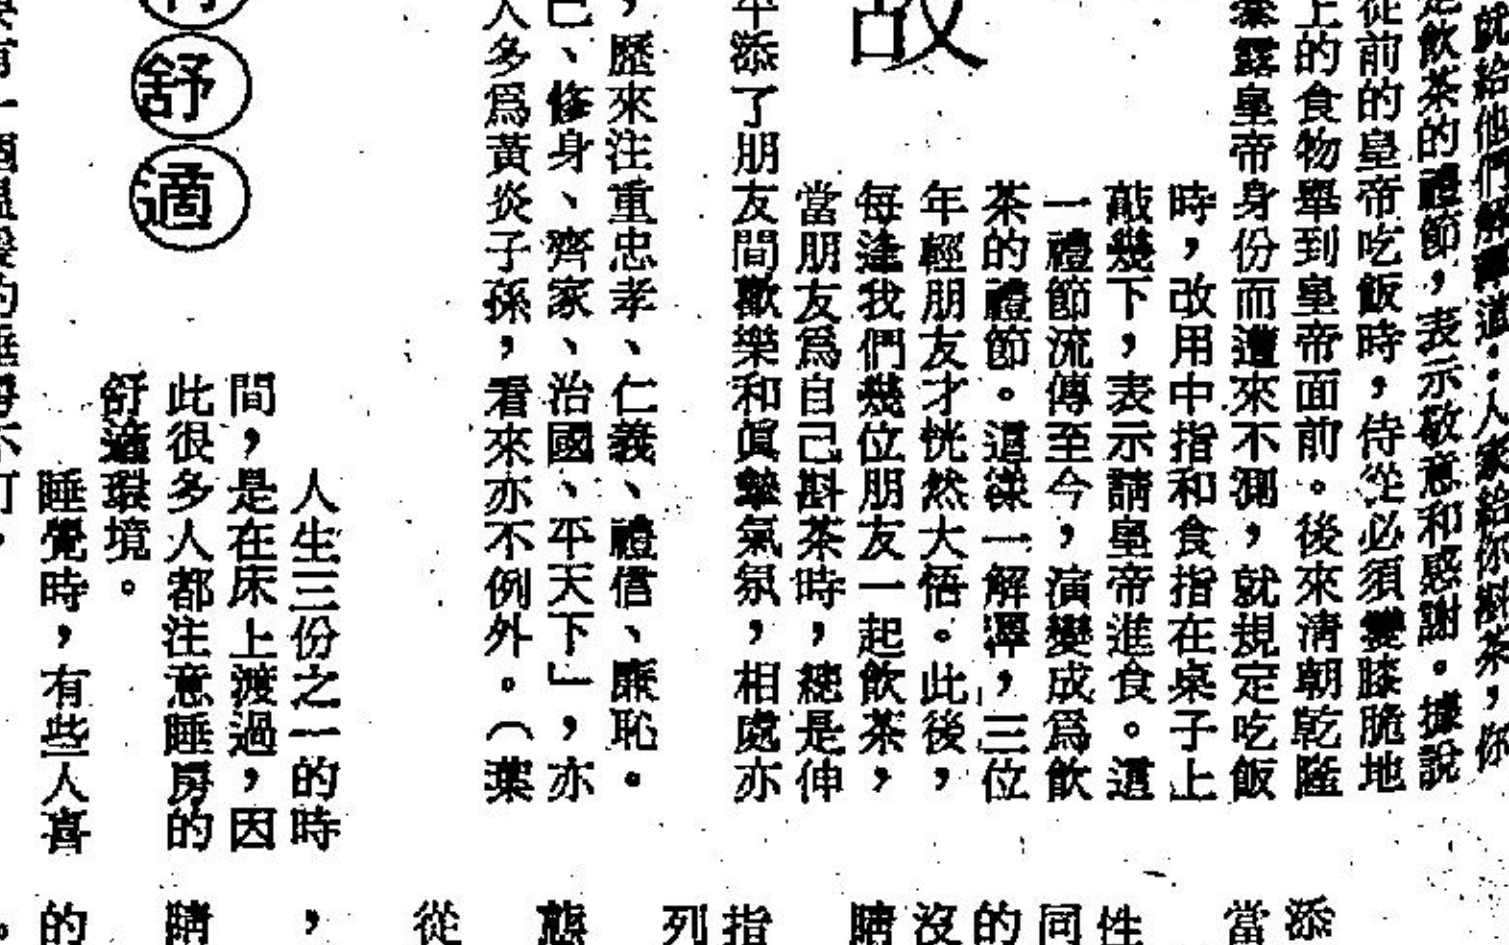 就給他們解釋道：人家給你斟茶，你
是飲茶的禮節，表示敬意和感謝。據說
從前的皇帝吃飯時，侍從必須雙膝脆地
上的食物舉到皇帝面前。後來清朝乾隆
暴露皇帝身份而遭來不測，就規定吃飯
時，改用中指和食指在桌子上
敲幾下，表示請皇帝進食。這
一禮節流傳至今，演變成爲飲
茶的禮節。這樣一解釋，三位
年輕朋友才恍然大悟。此後，
每逢我們幾位朋友一起飲茶，
當朋友爲自己斟茶時，總是伸
故
平添了朋友間歡樂和眞摯氣氛，相處亦
，歷來注重忠孝、仁義、禮信、廉恥。
己、修身、齊家、治國、平天下」，亦
人多爲黃炎子孫，看來亦不例外。（葉
舒適
人生三份之一的時
間，是在床上渡過，因
此很多人都注意睡房的
舒適環境。
睡覺時，有些人喜
有一個溫暖的睡房不可，
添
當
性
同
的
沒
睛
指
列
態
從
，
睛
的
。